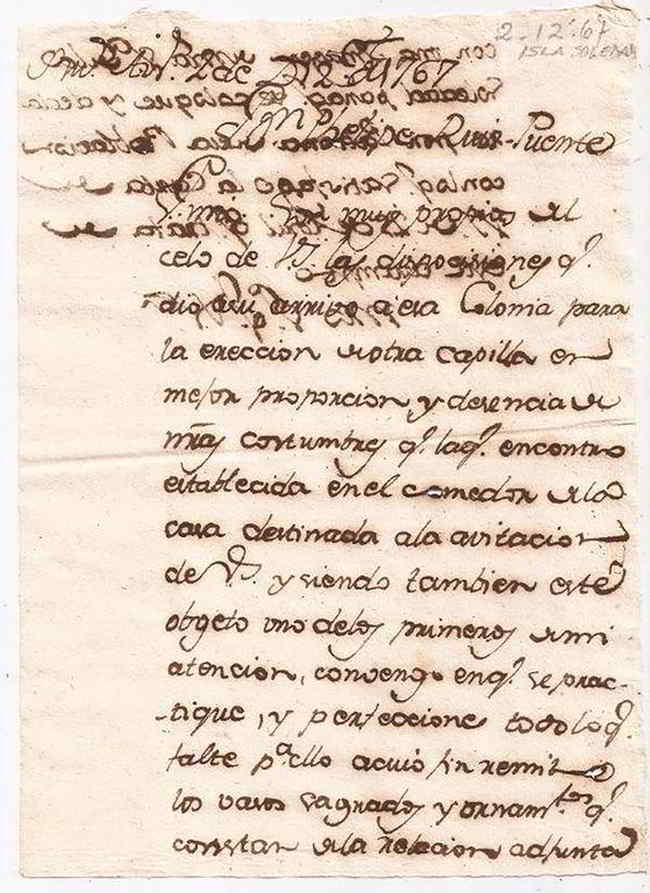 2-12-67
ISLA SOLEDAD
2 de D.re de 1767
Phelipe Ruiz Puente
mio. Son muy propias del
celo de V. las disposiciones q.
dio a su arrivo a esa Colonia para
la ereccion de otra capilla en
mejor proporcion y desencia de
nras costumbres q. la q. encontro
establecida en el comedor de la
casa destinada a la avitacion
de V. y siendo tambien este
obgeto uno de los primeros de mi
atencion, convengo en q. se prac-
tique, y perfeccione todo lo q.
falte p.a ello a cuio fin remito
los vasos sagrados y ornam.tos q.
constan de la relacion adjunta